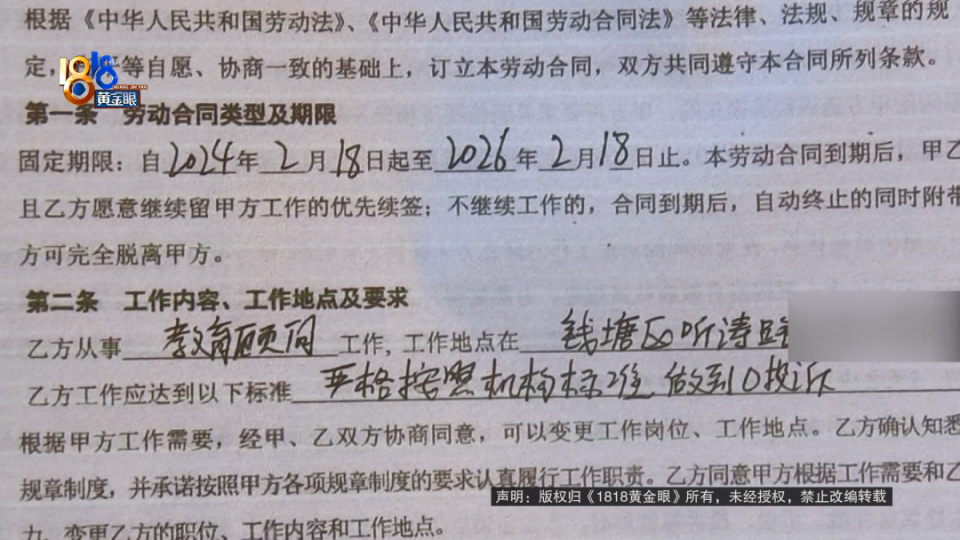 根据《中华人民共和国劳动法》、《中华人民共和国劳动合同法》等法律、法规、规章的规
定，平等自愿、协商一致的基础上，订立本劳动合同，双方共同遵守本合同所列条款。
1818
黄金眼
第一条 劳动合同类型及期限
固定期限：自2024年2月18日起至2026年2月18日止。本劳动合同到期后，甲乙
且乙方愿意继续留甲方工作的优先续签；不继续工作的，合同到期后，自动终止的同时附带
方可完全脱离甲方。
第二条 工作内容、工作地点及要求
乙方从事教育顾问工作，工作地点在钱塘区听涛路
乙方工作应达到以下标准严格按照机构标准 做到0投诉
根据甲方工作需要，经甲、乙双方协商同意，可以变更工作岗位、工作地点。乙方确认知悉
规章制度，并承诺按照甲方各项规章制度的要求认真履行工作职责。乙方同意甲方根据工作需要和乙
声明：版权归《1818黄金眼》所有，未经授权，禁止改编转载
力，变更乙方的职位、工作内容和工作地点。